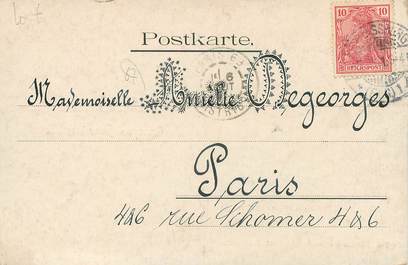 Postkarte.
10 10
REICHSPOST
Mademoiselle Amélie Degeorges
Paris
4&6 rue Schomer 4&6